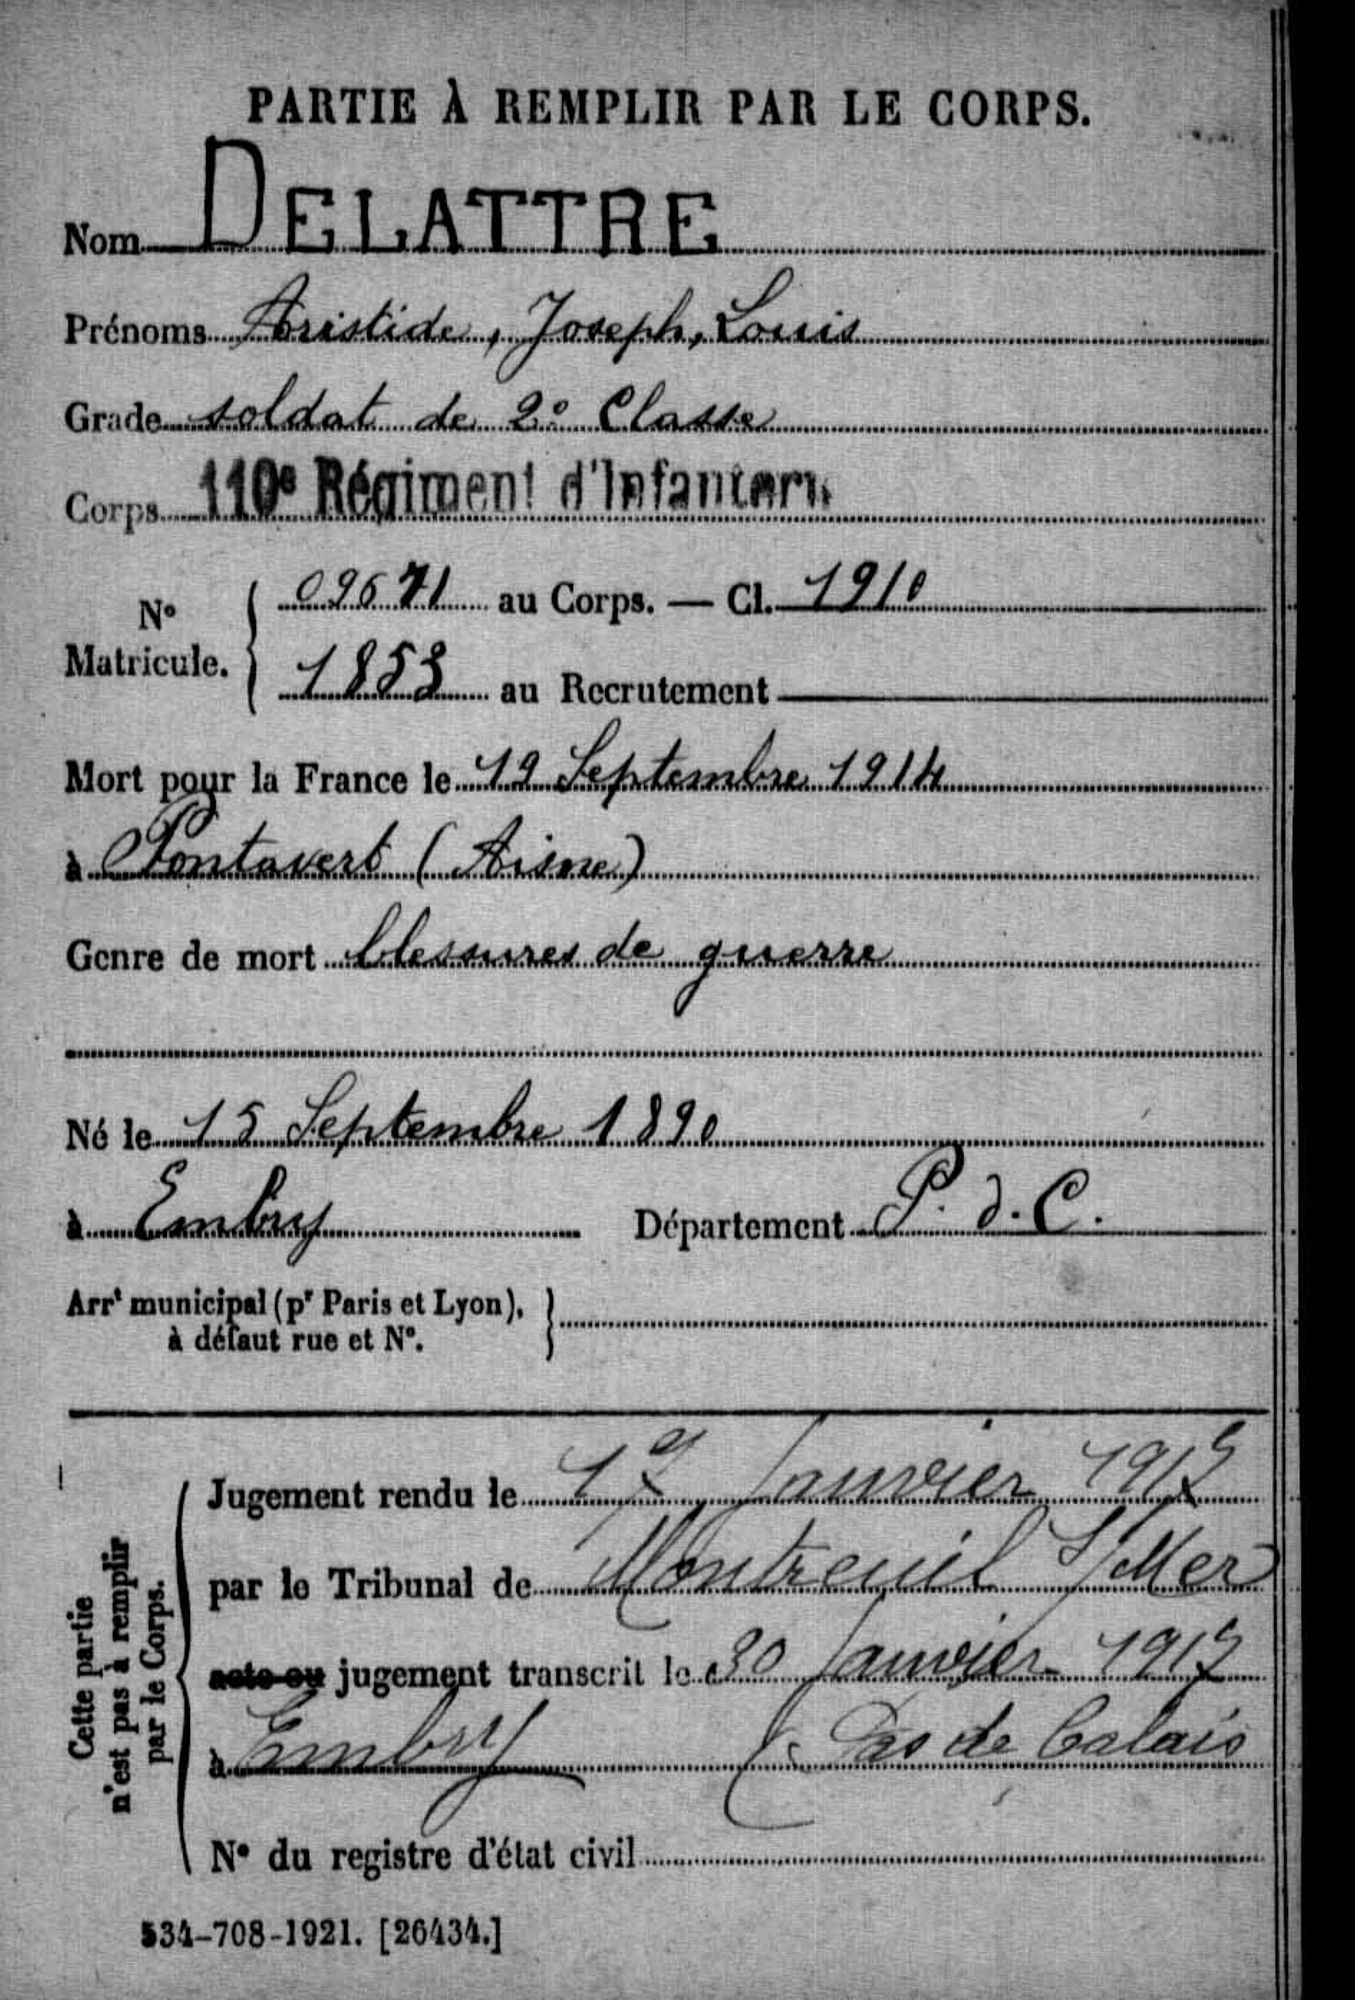 PARTIE À REMPLIR PAR LE CORPS.
Nom DELATTRE
Prénoms Aristide, Joseph, Louis
Grade soldat de 2e Classe
Corps 110e Régiment d'Infanterie
N° Matricule. { 09671 au Corps. — Cl. 1910
1853 au Recrutement
Mort pour la France le 19 Septembre 1914
à Pontavert (Aisne)
Genre de mort blessures de guerre
Né le 15 Septembre 1890
à Embry Département P. d. C.
Arrt municipal (pr Paris et Lyon), }
à défaut rue et N°.
Cette partie n'est pas à remplir par le Corps.
Jugement rendu le Janvier
par le Tribunal de Montreuil S/Mer
acte ou jugement transcrit le 30 Janvier
à Embry Pas de Calais
N° du registre d'état civil
534-708-1921. [26434.]